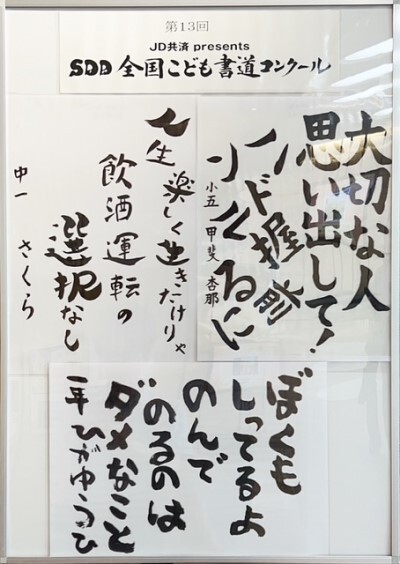 第13回
JD共済 presents
SDD 全国こども書道コンクール
大切な人
思い出して!
ハンドル
握る前に
小五 甲斐 杏那
人生楽しく生きたけりゃ
飲酒運転の
選択なし
中一 さくら
ぼくも
しってるよ
のんで
のるのは
ダメなこと
一年ひがゆうひ